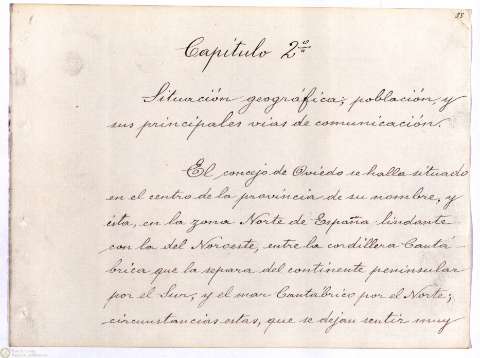 28
Capítulo 2º
Situación geográfica, población, y
sus principales vias de comunicación.
El concejo de Oviedo se halla situado
en el centro de la provincia de su nombre, y
ésta, en la zona Norte de España lindante
con la del Noroeste, entre la cordillera Cantá-
brica que la separa del continente peninsular
por el Sur, y el mar Cantábrico por el Norte;
circunstancias estas, que se dejan sentir muy